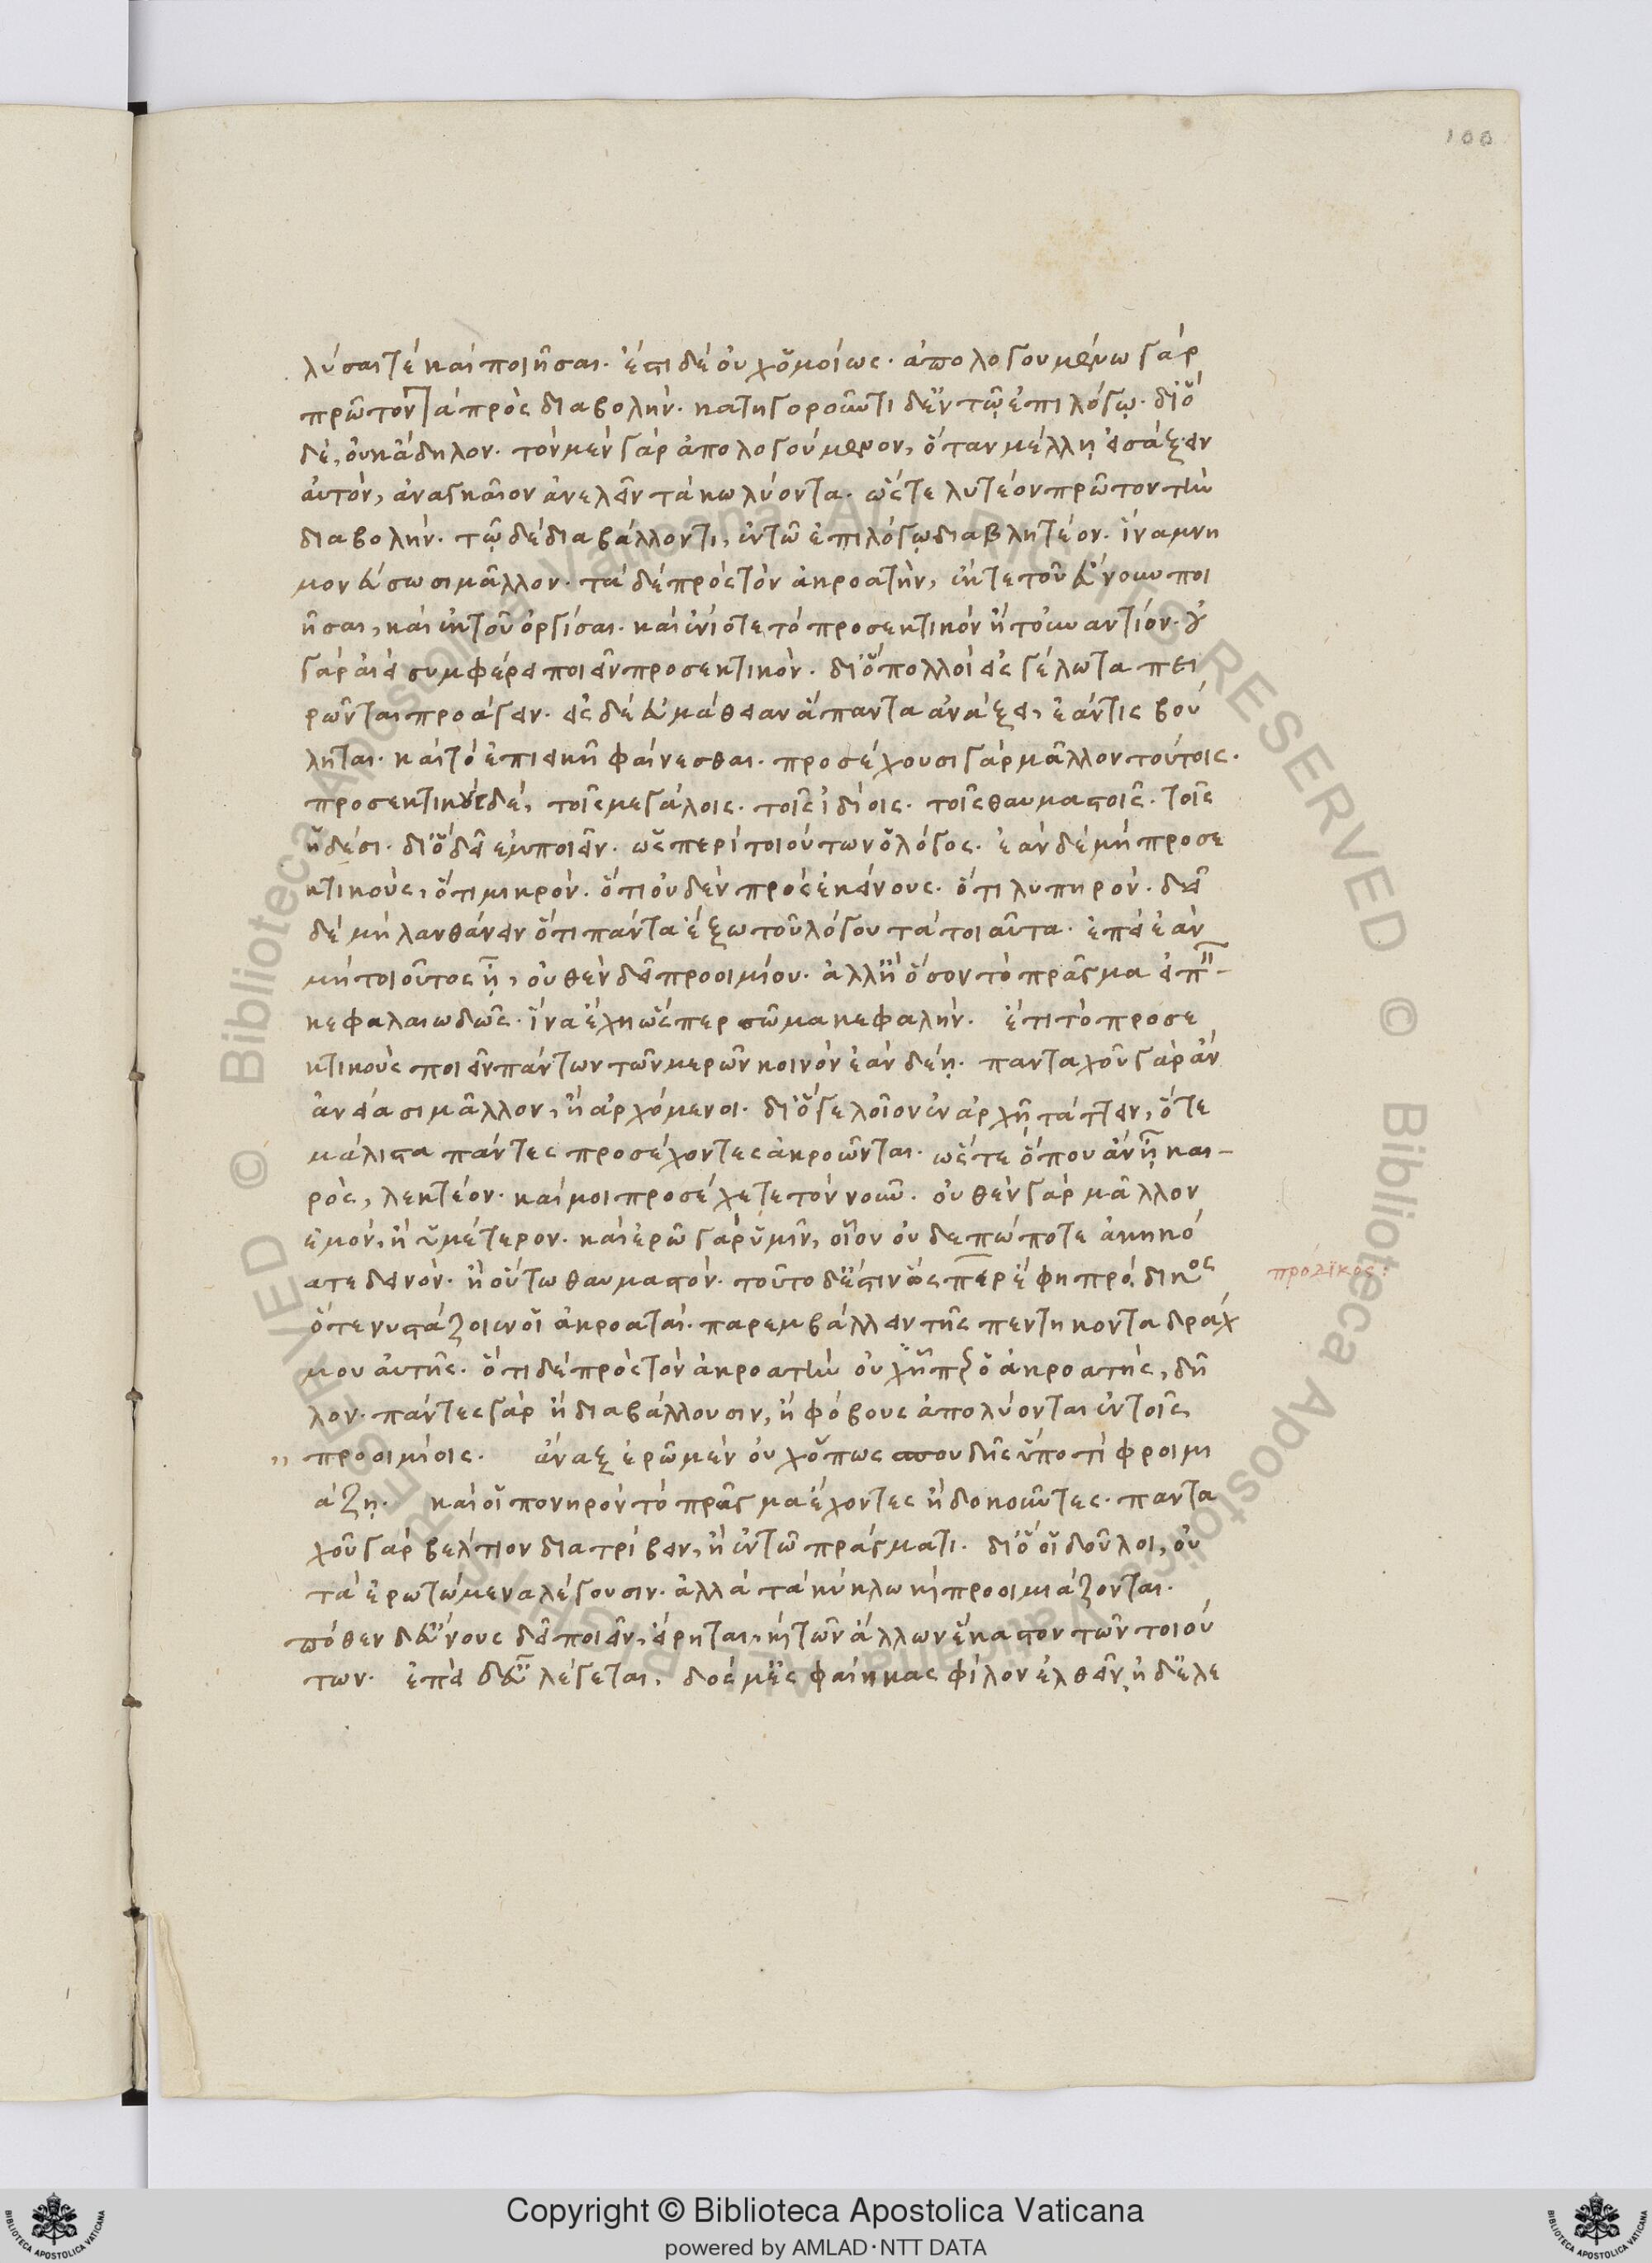 100
λύσαι τέ καὶ ποιῆσαι. ἔστι δὲ οὐχ ὁμοίως. ἀπολογουμένω γὰρ
πρῶτον τὰ πρὸς διαβολήν. κατηγοροῦντι δ' ἐν τῷ ἐπιλόγῳ. διὸ
δὲ, οὐκ ἄδηλον. τὸν μὲν γὰρ ἀπολογούμενον, ὅταν μέλλῃ εἰσάξειν
αὑτὸν, ἀναγκαῖον ἀνελεῖν τὰ κωλύοντα. ὥστε λυτέον πρῶτον τὴν
διαβολήν. τῷ δὲ διαβάλλοντι, ἐν τῶ ἐπιλόγῳ διαβλητέον. ἵνα μνη
μονεύσωσι μᾶλλον. τὰ δὲ πρὸς τὸν ἀκροατὴν, ἔκ τε τοῦ εὔνουν ποι
ῆσαι, καὶ ἐκ τοῦ ὀργίσαι. καὶ ἐνίοτε τὸ προσεκτικὸν ἢ τοὐναντίον. οὐ
γὰρ αἰεὶ συμφέρει ποιεῖν προσεκτικόν. διὸ πολλοὶ εἰς γέλωτα πει
ρῶνται προάγειν. εἰς δὲ εὐμάθειαν ἅπαντα ἀνάξει, ἐάν τις βού
ληται. καὶ τὸ ἐπιεικῆ φαίνεσθαι. προσέχουσι γὰρ μᾶλλον τούτοις.
προσεκτικοὶ δὲ, τοῖς μεγάλοις. τοῖς ἰδίοις. τοῖς θαυμαστοῖς. τοῖς
ἡδέσι. διὸ δεῖ ἐμποιεῖν. ὡς περὶ τοιούτων ὁ λόγος. ἐὰν δὲ μὴ προσε
κτικοὺς, ὅτι μικρόν. ὅτι οὐδὲν πρὸς ἐκείνους. ὅτι λυπηρόν. δεῖ
δὲ μὴ λανθάνειν ὅτι πάντα ἔξω τοῦ λόγου τὰ τοιαῦτα. ἐπεὶ ἐὰν
μὴ τοιοῦτος ᾖ, οὐθὲν δεῖ προοιμίου. ἀλλ' ἢ ὅσον τὸ πρᾶγμα εἰπεῖν
κεφαλαιωδῶς. ἵνα ἔχῃ ὥσπερ σῶμα κεφαλήν. ἔτι τὸ προσε
κτικοὺς ποιεῖν πάντων τῶν μερῶν κοινὸν ἐὰν δέῃ. πανταχοῦ γὰρ ἂν
ἀνειᾶσι μᾶλλον, ἢ ἀρχόμενοι. διὸ γελοῖον ἐν ἀρχῇ τάττειν, ὅτε
μάλιστα πάντες προσέχοντες ἀκροῶνται. ὥστε ὅπου ἂν ᾖ και-
ρὸς, λεκτέον. καί μοι προσέχετε τὸν νοῦν. οὐθὲν γὰρ μᾶλλον
ἐμὸν, ἢ ὑμέτερον. καὶ ἐρῶ γὰρ ὑμῖν, οἷον οὐδεπώποτε ἀκηκό
ατε δεινόν. ἢ οὕτω θαυμαστόν. τοῦτο δ' ἔστιν ὥσπερ ἔφη πρόδικος
πρόδϊκος:
ὅτε νυστάζοιεν οἱ ἀκροαταί. παρεμβάλλειν τῆς πεντηκονταδράχ
μου αὐτῆς. ὅτι δὲ πρὸς τὸν ἀκροατὴν οὐχ ᾗπερ ὁ ἀκροατὴς, δῆ
λον. πάντες γὰρ ἢ διαβάλλουσιν, ἢ φόβους ἀπολύονται ἐν τοῖς
" προοιμίοις. ἄναξ ἐρῶ μὲν οὐχ ὅπως σπουδῆς ὕπο τί φροιμι
άζῃ. καὶ οἱ πονηρὸν τὸ πρᾶγμα ἔχοντες ἢ δοκοῦντες. παντα
χοῦ γὰρ βέλτιον διατρίβειν, ἢ ἐν τῶ πράγματι. διὸ οἱ δοῦλοι, οὐ
τὰ ἐρωτώμενα λέγουσιν. ἀλλὰ τὰ κύκλω καὶ προοιμιάζονται.
πόθεν δ' εὔνους δεῖ ποιεῖν, εἴρηται, καὶ τῶν ἄλλων ἕκαστον τῶν τοιού
των. ἐπεὶ δ' εὖ λέγεται, δός μ' ἐς φαίηκας φίλον ἐλθεῖν ἠδ' ἐλε
Copyright © Biblioteca Apostolica Vaticana
powered by AMLAD·NTT DATA